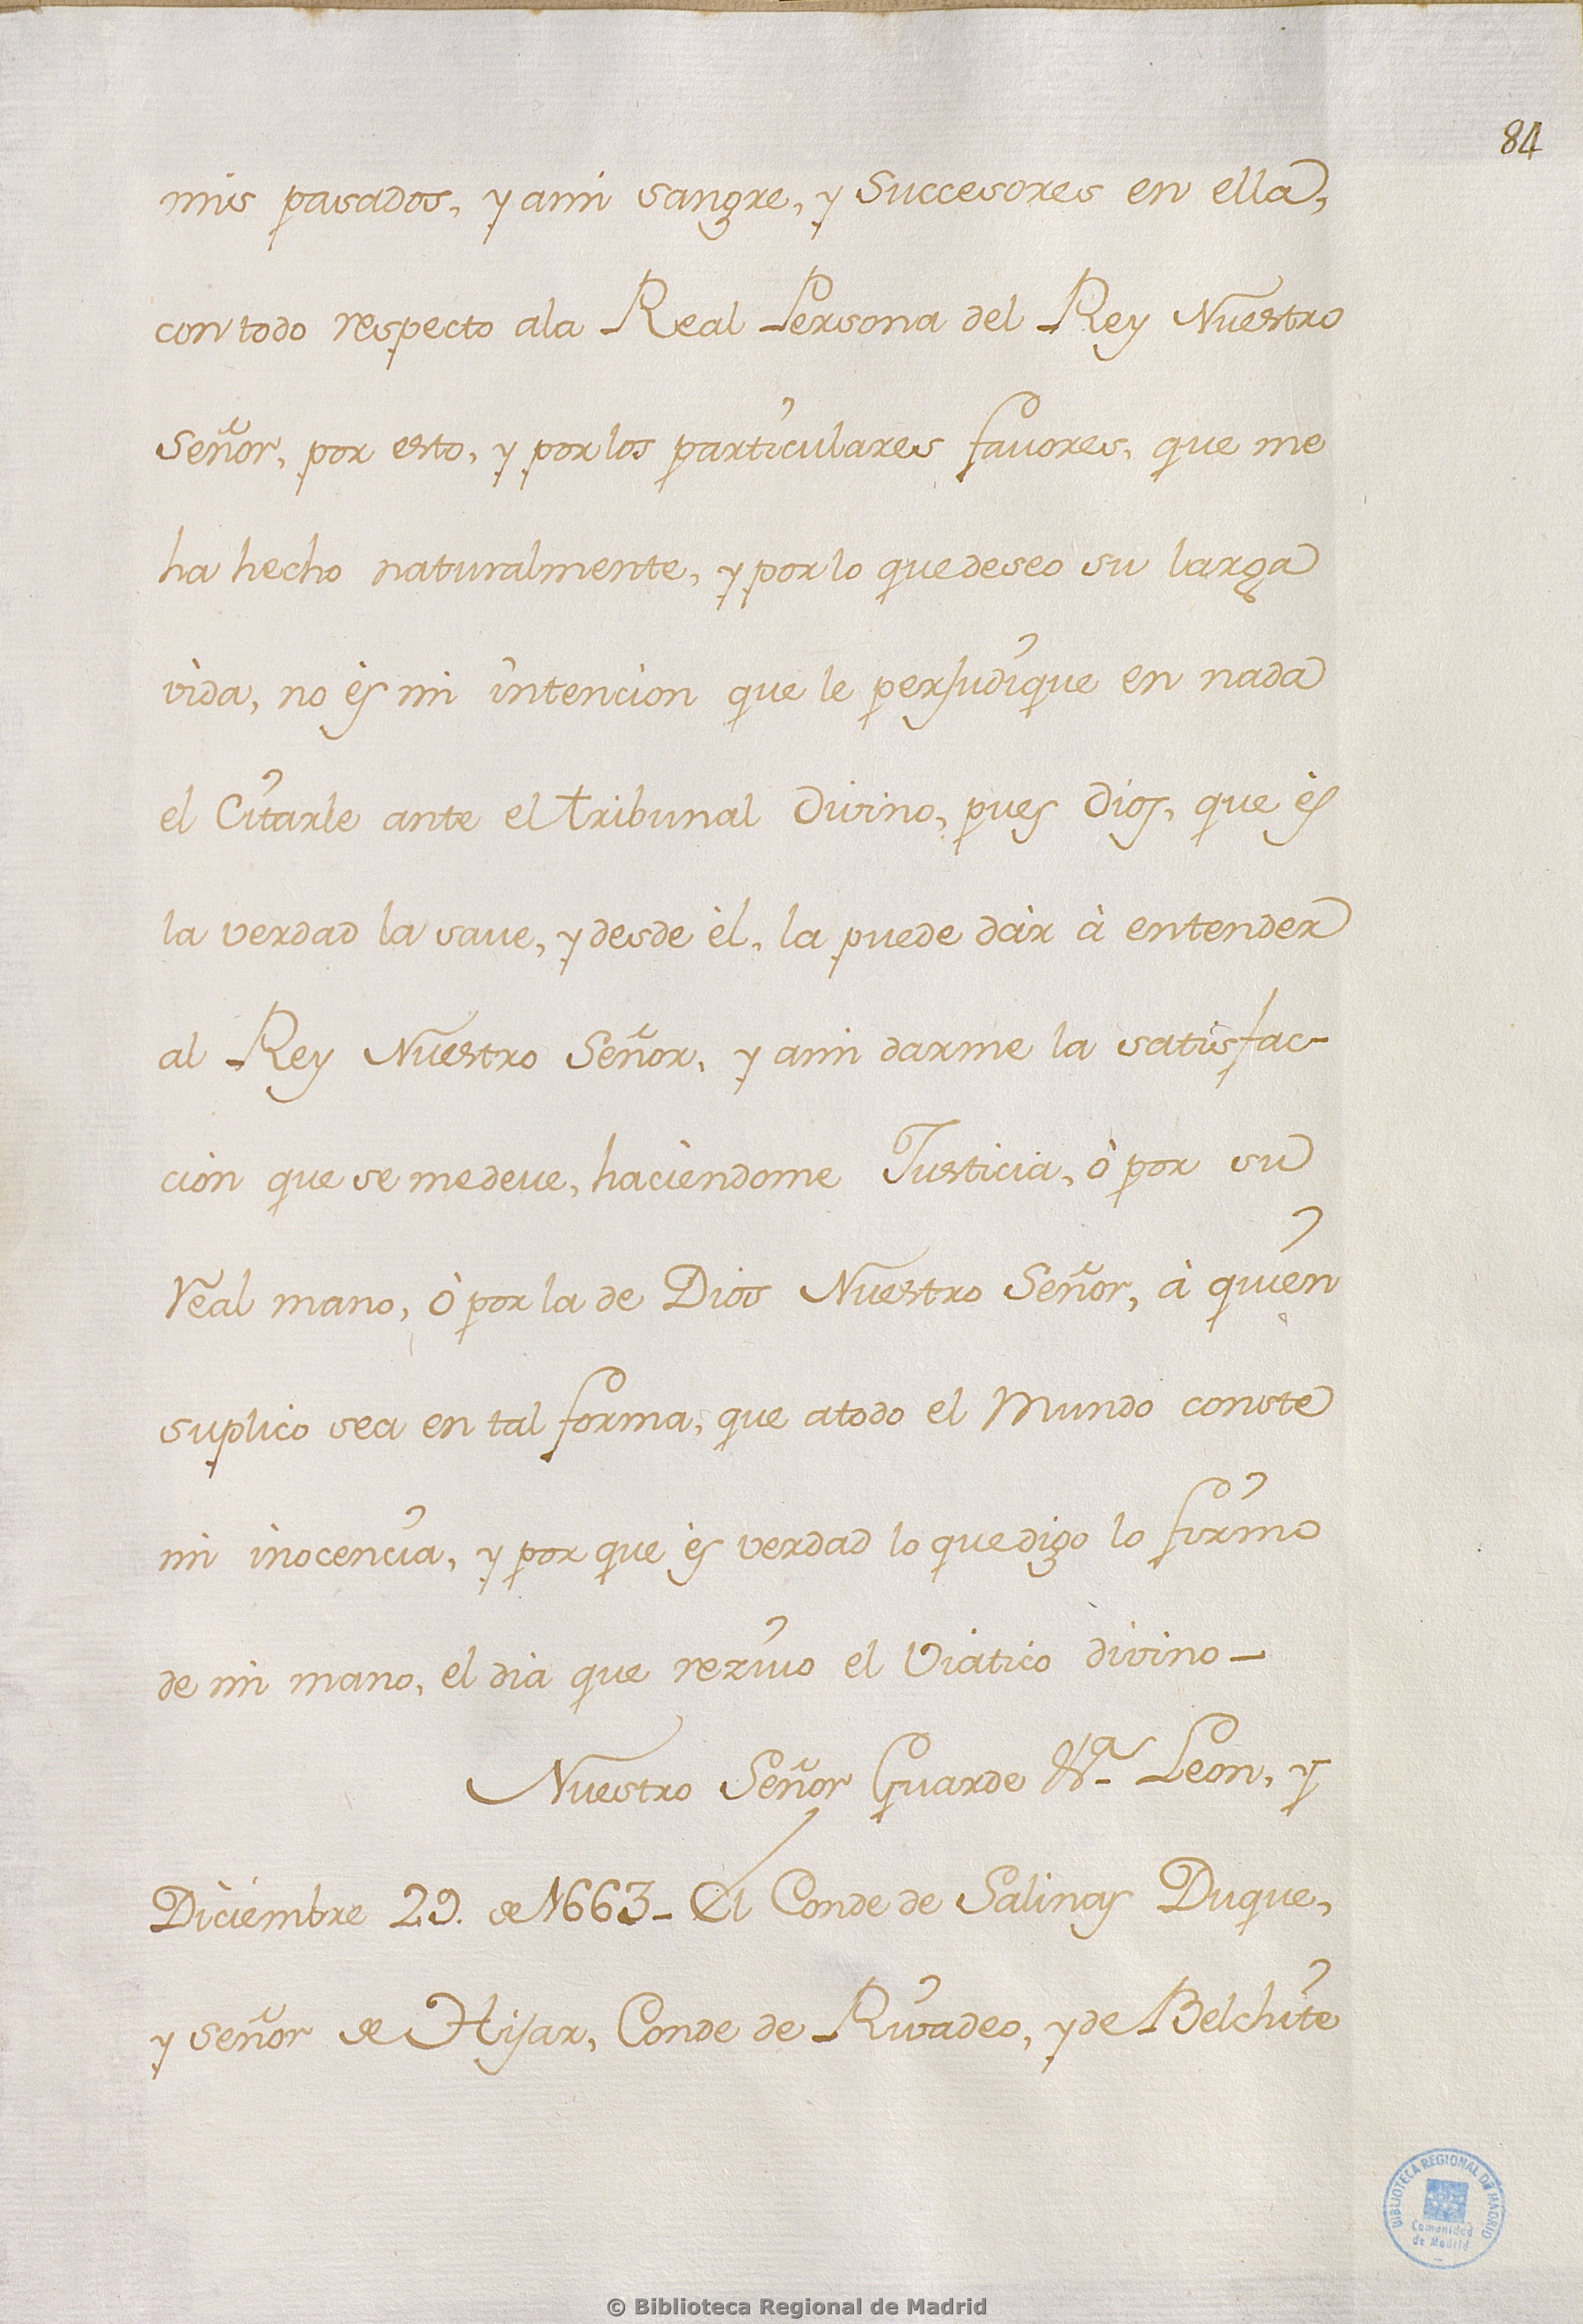 84
mis pasados, y ami sangre, y Successores en ella,
con todo respecto ala Real Persona del Rey Nuestro
Señor, por esto, y por los particulares favores, que me
ha hecho naturalmente, y por lo que deseo su larga
vida, no ès mi intencion que le perjudique en nada
el Citarle ante el tribunal Divino, pues Dios, que ès
la verdad la save, y desde èl, la puede dàr à entender
al Rey Nuestro Señor, y ami darme la satisfac-
cion que se me deve, haciendome Justicia, ò por su
Real mano, ò por la de Dios Nuestro Señor, à quien
suplico sea en tal forma, que atodo el Mundo conste
mi inocencia, y por que ès verdad lo que digo lo firmo
de mi mano, el dia que rezivo el Viatico divino-
Nuestro Señor Guarde &ª. Leon, y
Diciembre 29. de 1663- El Conde de Salinas Duque,
y señor de Hijar, Conde de Rivadeo, y de Belchite
BIBLIOTECA REGIONAL DE MADRID
Comunidad
de Madrid
© Biblioteca Regional de Madrid